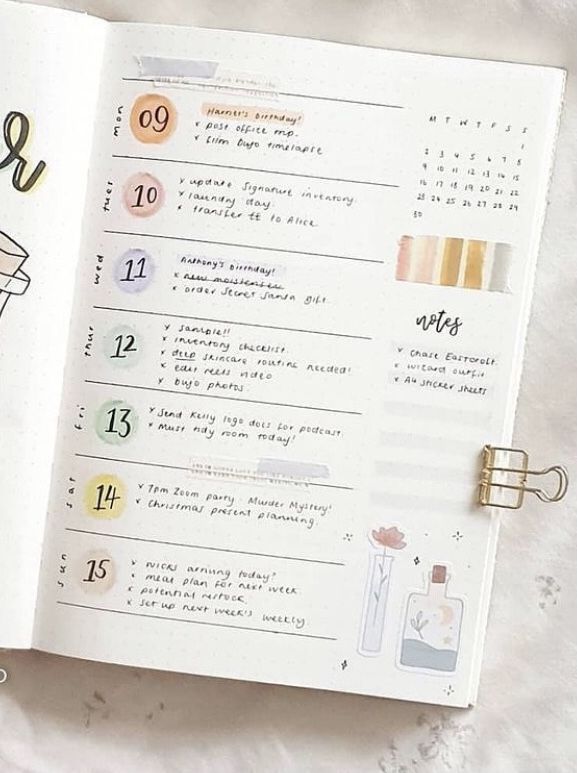 r
mon
09
Harriet's Birthday!
x post office trip.
x film bujo timelapse
tues
10
x update signature inventory.
x laundry day.
x transfer tt to Alice
wed
11
Anthony's Birthday!
x new moisturiser
x order Secret Santa gift.
thur
12
x sample!!
x inventory checklist.
x deep skincare routine needed!
x edit reels video
x bujo photos.
fri
13
x Send Kelly logo docs for podcast.
x Must tidy room today!
sat
14
x 7pm Zoom party - Murder Mystery!
x Christmas present planning.
sun
15
x arriving today?
x meal plan for next week.
x potential restock.
x set up next week's weekly.
M T W T F S S
1
2 3 4 5 6 7 8
9 10 11 12 13 14 15
16 17 18 19 20 21 22
23 24 25 26 27 28 29
30
notes
x Chase Eastcroft.
x wizard outfit
x A4 sticker sheets